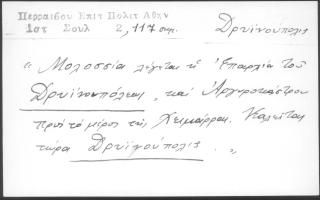 Περραιβου Επιτ Πολιτ Αθην
Ιστ Σουλ 2, 117 σημ.
Δρυϊνούπολις
« Μολοσσία λέγεται ἡ Ἐπαρχία τοῦ
Δρυϊνουπόλεως, καὶ Ἀργυροκάστρου
πρὸς τὸ μέρος τῆς Χειμάρρας. Καλεῖται
τώρα Δρυϊνούπολις. »